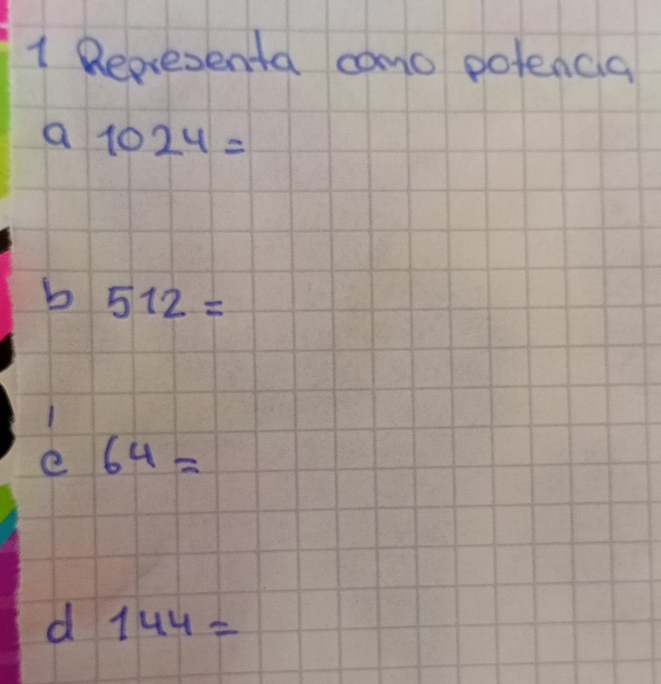 1 Representa como potencia
a 1024 =
b 512 =
c 64 =
d 144 =